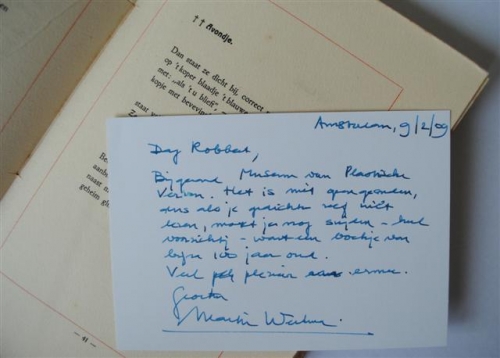 †† Avondje.
Dan staat ze dicht bij, correct
op 't koper blaadje 't blauwe
met: „als 't u blieft",
kopje met beve
staat
Za
aanb
naast
geheim
— 41 —
Amsterdam, 9/2/09
Dag Robbert,
Bijgaand Museum van Plastische
Verzen. Het is niet opengesneden,
dus als je gedicht nog niet
lezen, moet je nog snijden – heel
voorzichtig – want een boekje van
bijna 100 jaar oud.
Veel plezier ermee.
Groeten
Martin